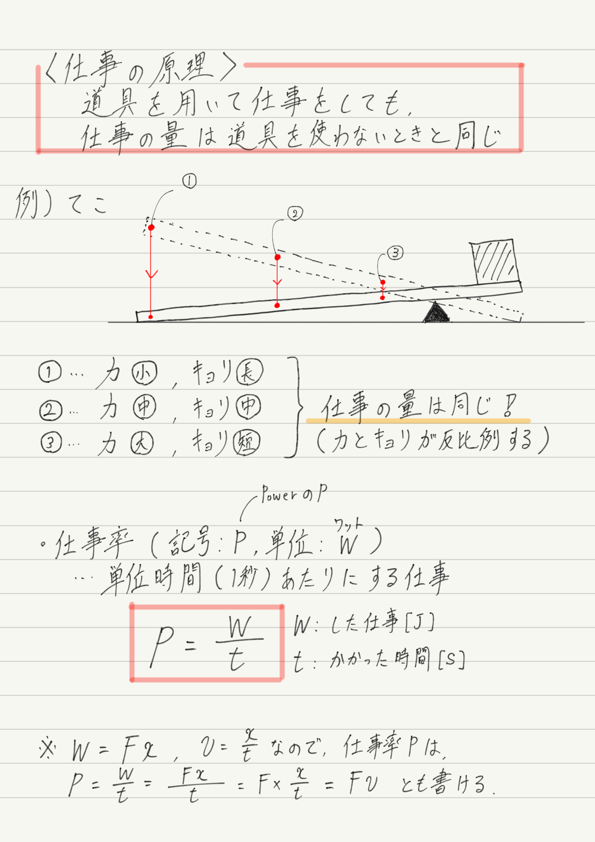 〈仕事の原理〉
道具を用いて仕事をしても,
仕事の量は道具を使わないときと同じ
例) てこ
①
②
③
①… 力㊙小, キョリ長
②… 力中, キョリ中
③… 力大, キョリ短
仕事の量は同じ!
(力とキョリが反比例する)
PowerのP
・仕事率 (記号:P, 単位:W)
ワット
… 単位時間 (1秒) あたりにする仕事
P = W/t
W: した仕事[J]
t: かかった時間[S]
※ W = Fx , v = x/t なので, 仕事率Pは,
P = W/t = Fx/t = F× x/t = Fv とも書ける.